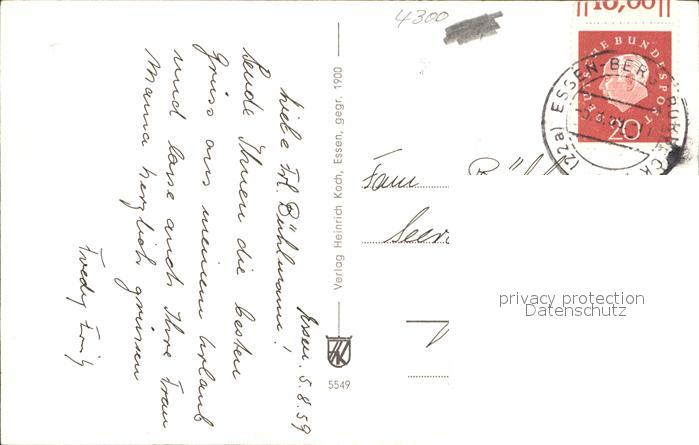 4300
10,00
DEUTSCHE BUNDESPOST
20
(22a) ESSEN-BERG
Essen. 5.8.59
Liebe Frl. Bühlmann!
Sende Ihnen die besten
Grüss aus meinem Urlaub
und lasse auch Ihre Frau
Mama herzlich grüssen
Verlag Heinrich Koch, Essen, gegr. 1900
5549
Fam
privacy protection
Datenschutz